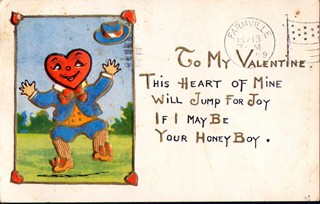 FARMVILLE
To My Valentine.
This Heart of Mine
Will Jump For Joy
If I May Be
Your Honey Boy.